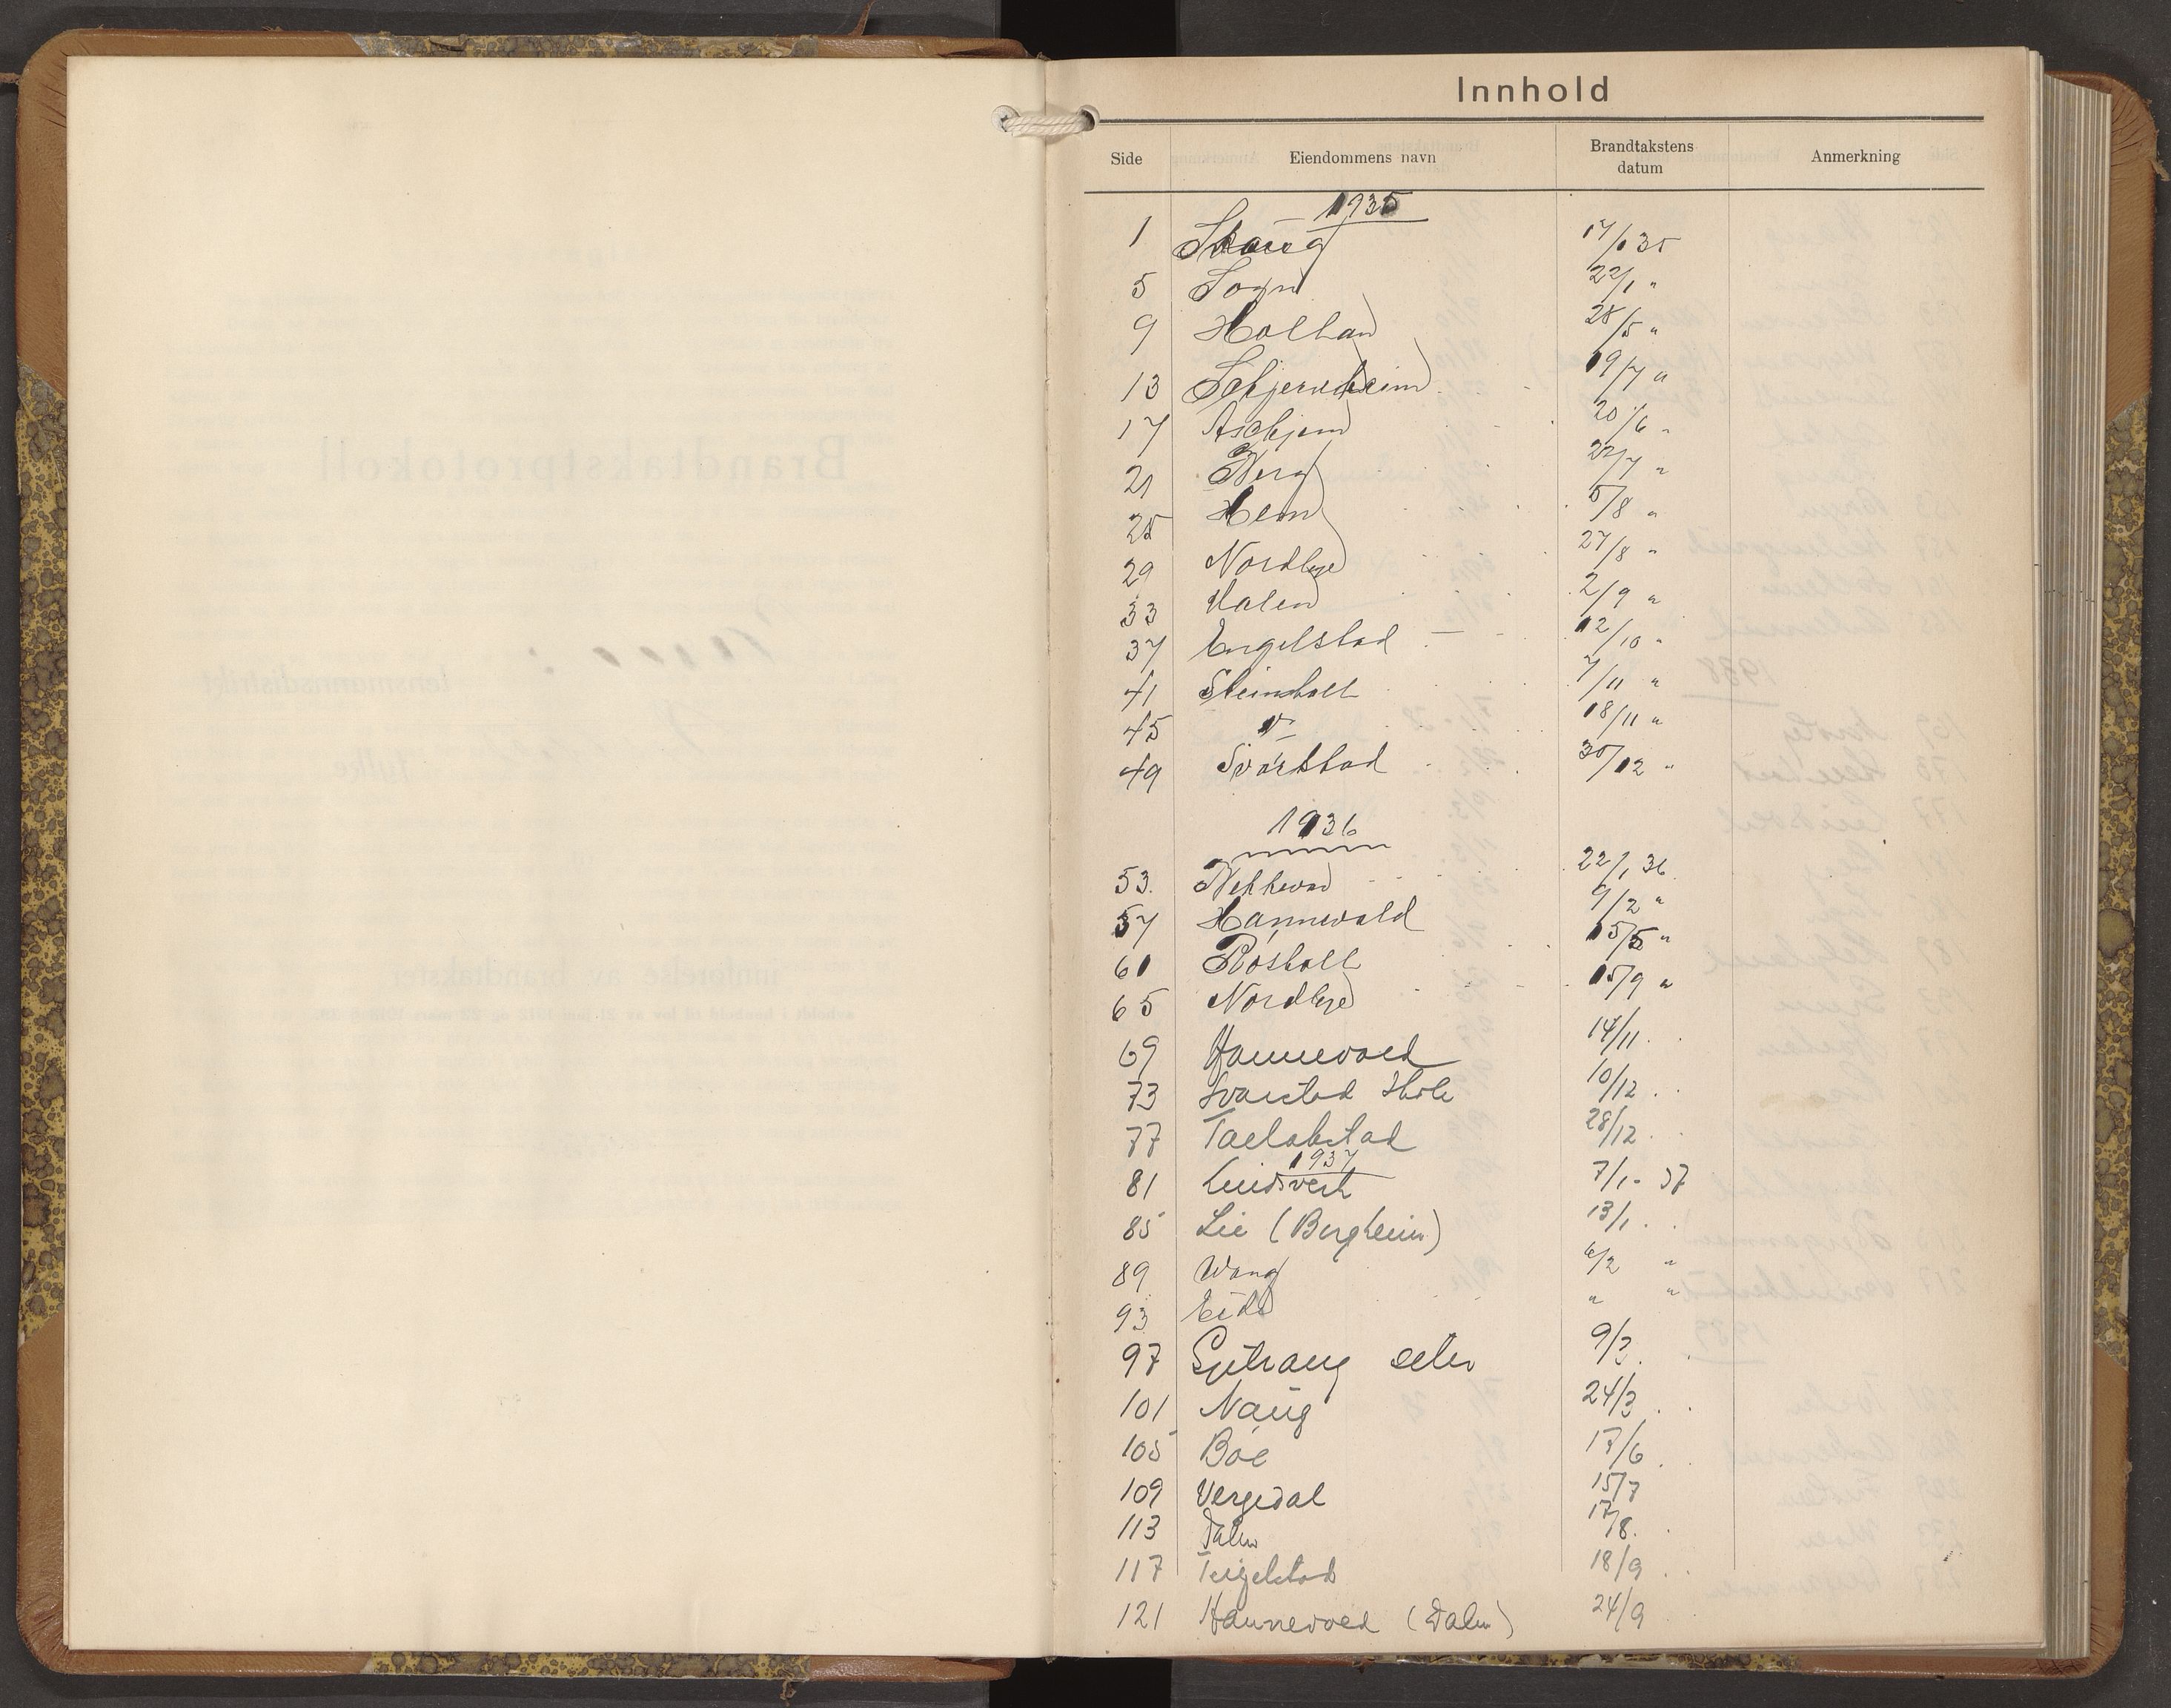 Innhold
Side Eiendommens navn Brandtakstens datum Anmerkning
1935
1 Skaug 17/1 35
5 Sogn 22/1 "
9 Holhan 28/5 "
13 Schjervheim 19/7 "
17 Aschjem 20/6 "
21 Berg 22/7 "
25 Hem 5/8 "
29 Nordbye 27/8 "
33 Valen 2/9 "
37 Engelstad 12/10 "
41 Steinsholt 7/11 "
45 " 18/11 "
49 Svarstad 30/12 "
1936
53. 22/1 36
57 Hannevold 9/2 "
61 Røsholt 15/5 "
65 Nordbye 15/9 "
69 Hannevold 14/11
73 Svarstad Skole 10/12
77 28/12
1937
81 Lindsverk 7/1 - 37
85 Lie (Bergheim) 13/1
89 Wang 6/2 "
93 Eide " "
97 9/3
101 Naug 24/3
105 Bøe 17/6
109 Vergedal 15/7
113 Dalen 17/8.
117 Teigelstad 18/9
121 Hannevold (Dalen) 24/9